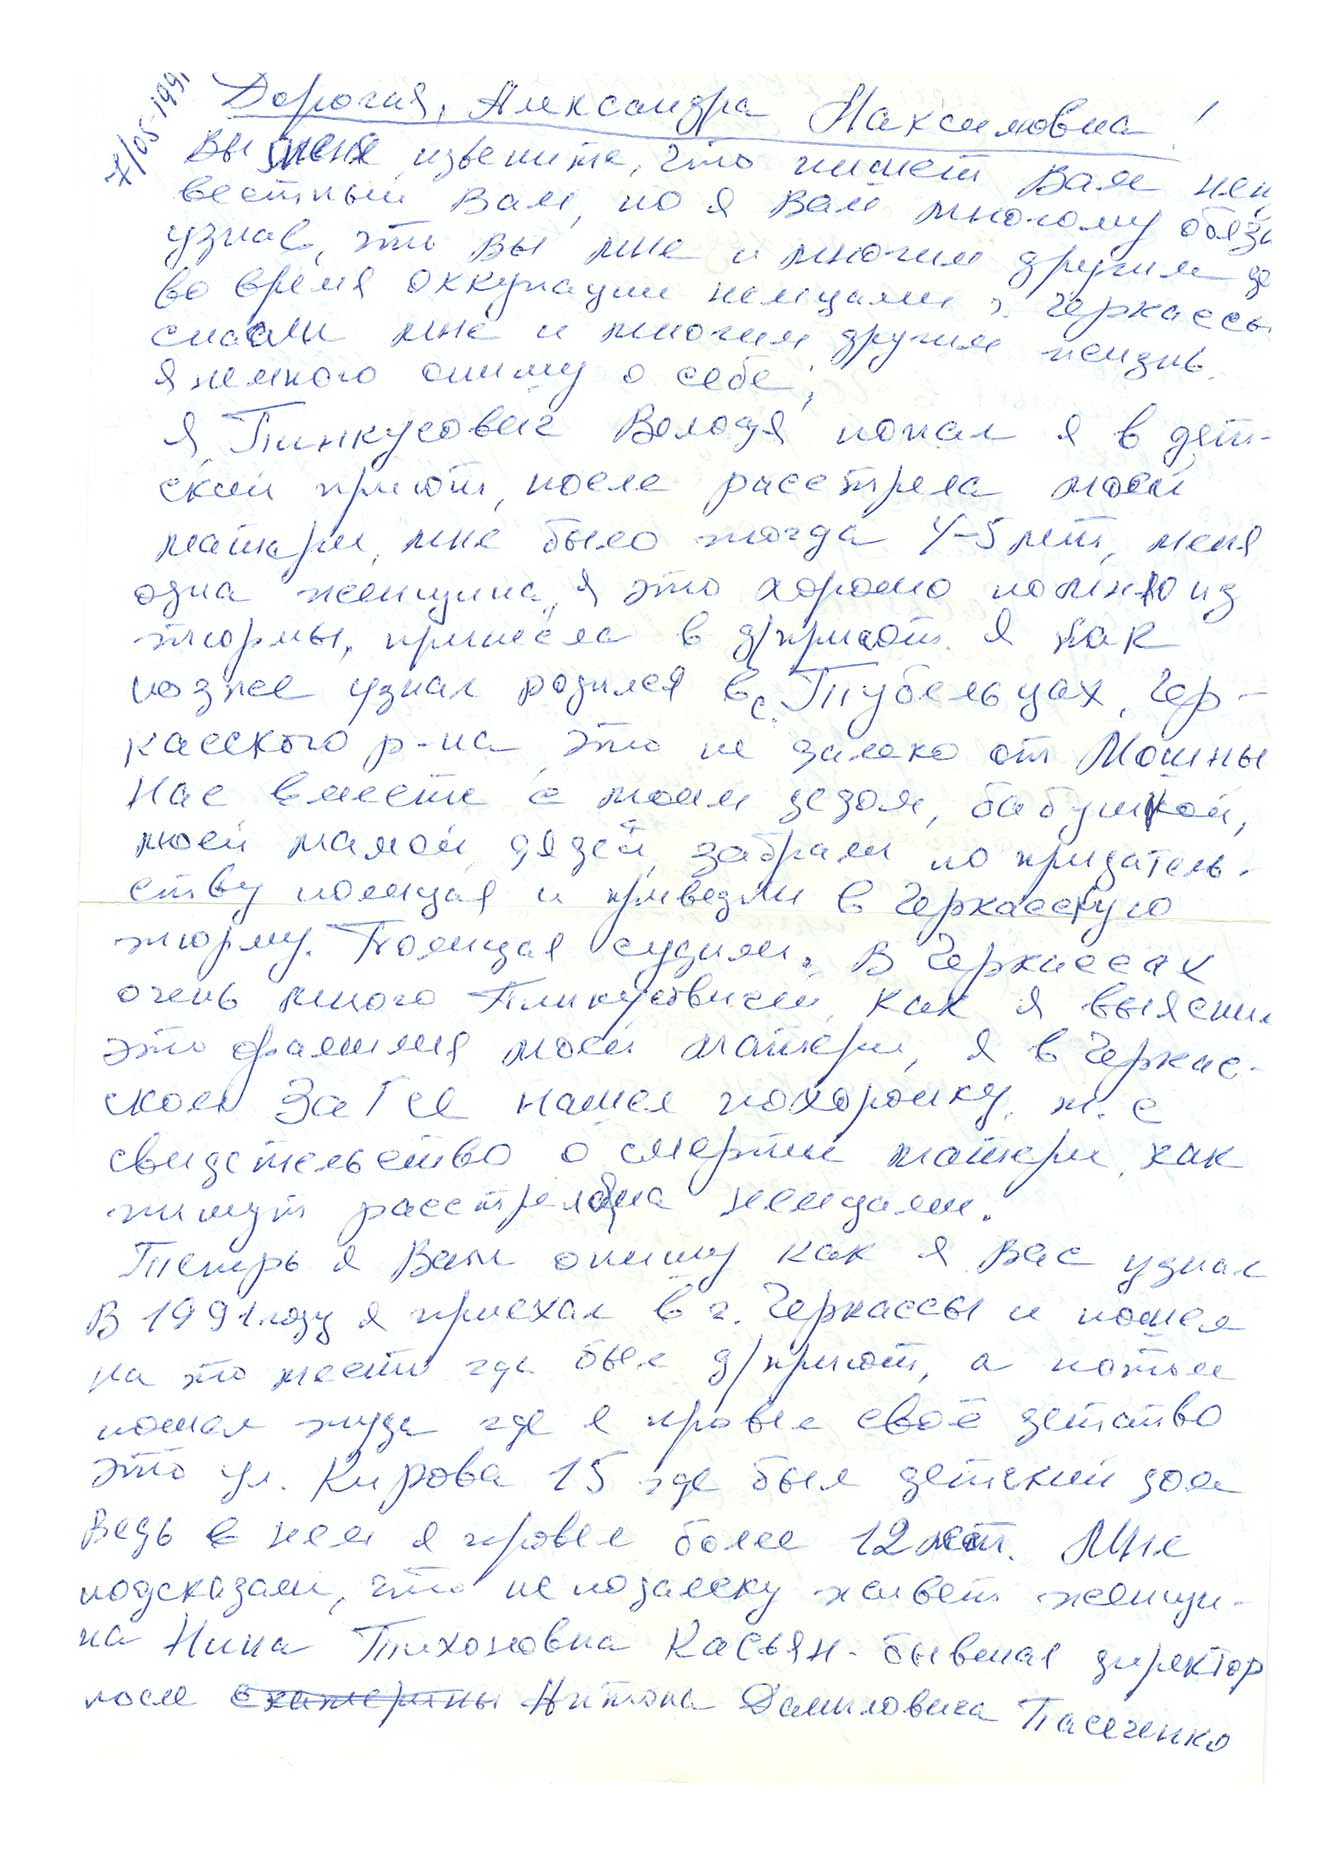 7/05-1991
Дорогая, Александра Максимовна!
Вы меня извените, что пишет Вам неи
вестный Вам, но я Вам многому обяза
узнав, это Вы мне и многим другим де
во время оккупации немцами г. Черкассы
спасли мне и многим другим жизнь.
Я немного опишу о себе;
Я, Пинкусович Володя попал я в дет-
ский приют, после расстрела моей
матери, мне было тогда 4-5 лет, меня
одна женщина, я это хорошо помню из
тюрмы, принесла в д/приют. Я как
позже узнал родился в с. Тубельцах, Чер-
касского р-на это не далеко от Мошны
Нас вместе с моим дедом, бабушкой,
моей мамой, дядей, забрали по придатель-
ству полицая и привезли в Черкасскую
тюрму. Полицая судили. В Черкассах
очень много Пинкусовичей, как я выяснил
это фамилия моей матери, я в Черкас-
ском ЗаГсе нашел похоронку, т.е
свидетельство о смерти матери, как
пишут расстреляна немцами.
Теперь я Вам опишу как я Вас узнал
В 1991 году я приехал в г. Черкассы и пошел
на это место где был д/приют, а потом
пошел туда где я провел своё детство
это ул. Кирова 15 где был детский дом
Ведь в нем я провел более 12 лет. Мне
подсказали, что не подалеку живет женщи-
на Нина Тихоновна Касьян - бывшая директор
после Антона Даниловича Пасеченко